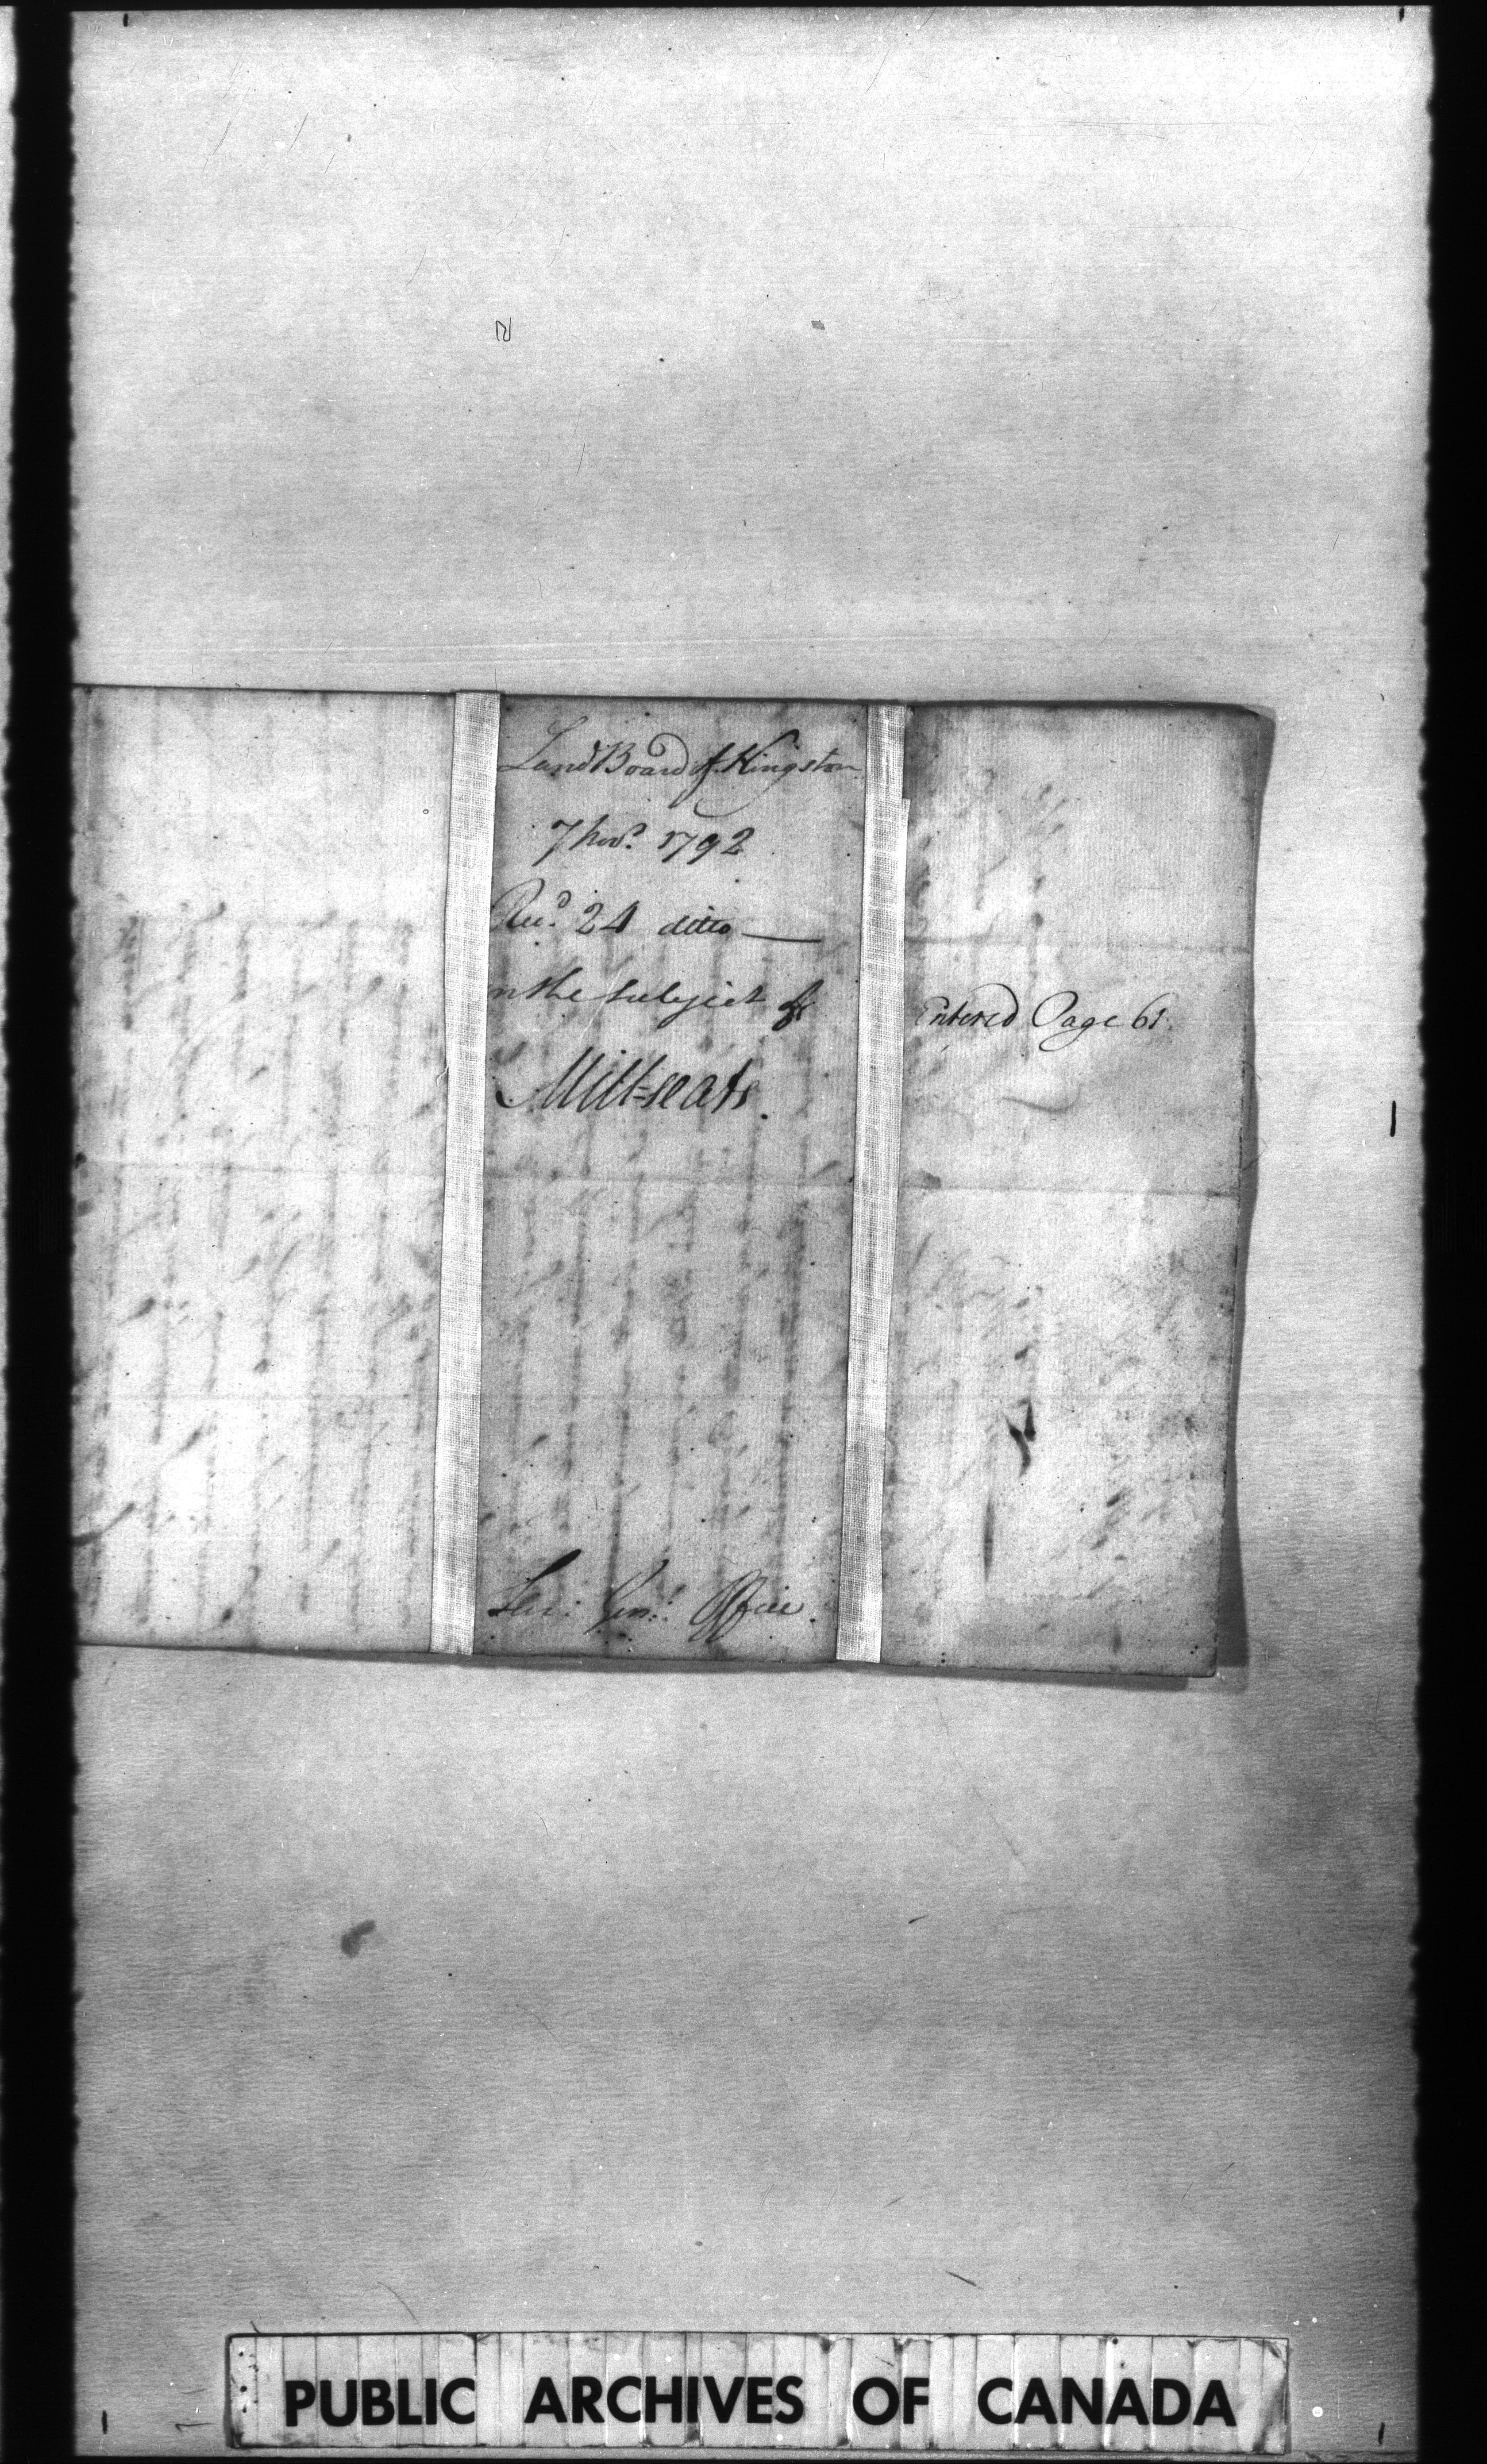 Land Board of Kingston
7 Novr. 1792
Recd. 24 ditto —
on the subject of
Mill-seats.
Office.
Entered Page 61.
PUBLIC ARCHIVES OF CANADA